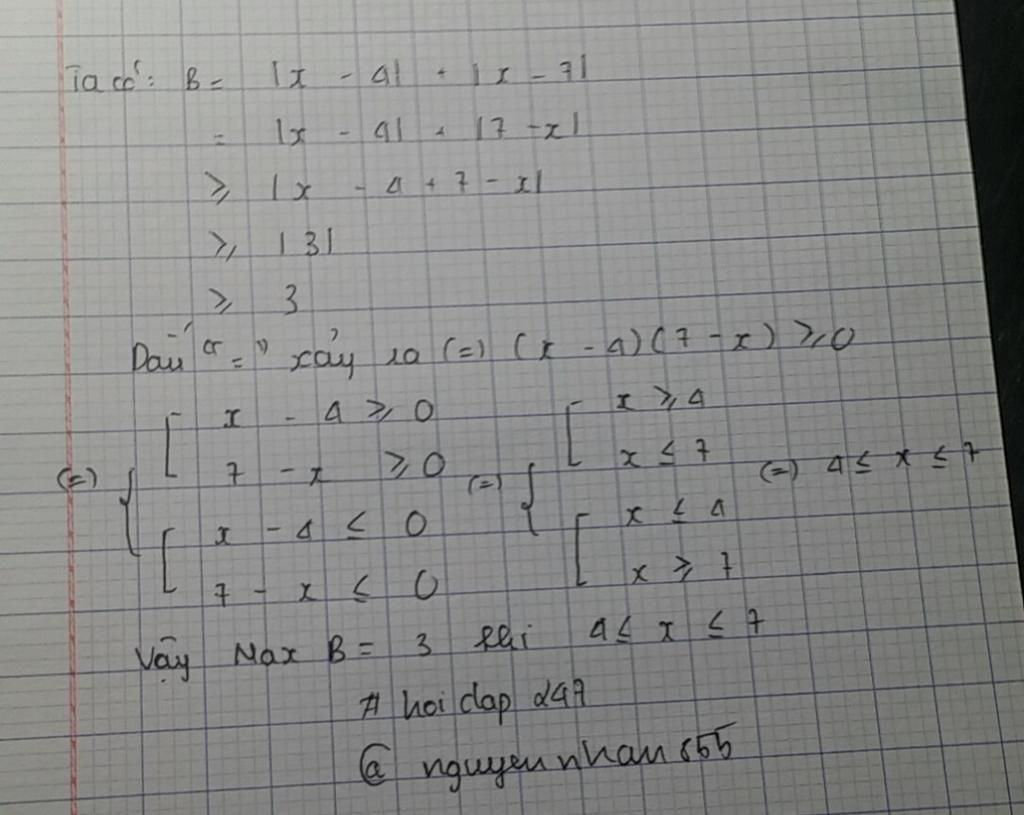 Ta có: B = |x - 4| + |x - 7|
= |x - 4| + |7 - x|
≥ |x - 4 + 7 - x|
≥ |3|
≥ 3
Dấu "=" xảy ra (=) (x - 4)(7 - x) ≥ 0
(=) { [ x - 4 ≥ 0 (=) { [ x ≥ 4
7 - x ≥ 0 x ≤ 7 (=) 4 ≤ x ≤ 7
[ x - 4 ≤ 0 [ x ≤ 4
7 - x ≤ 0 x ≥ 7
Vậy Max B = 3 khi 4 ≤ x ≤ 7
# hoidap247
@ nguyennhan655